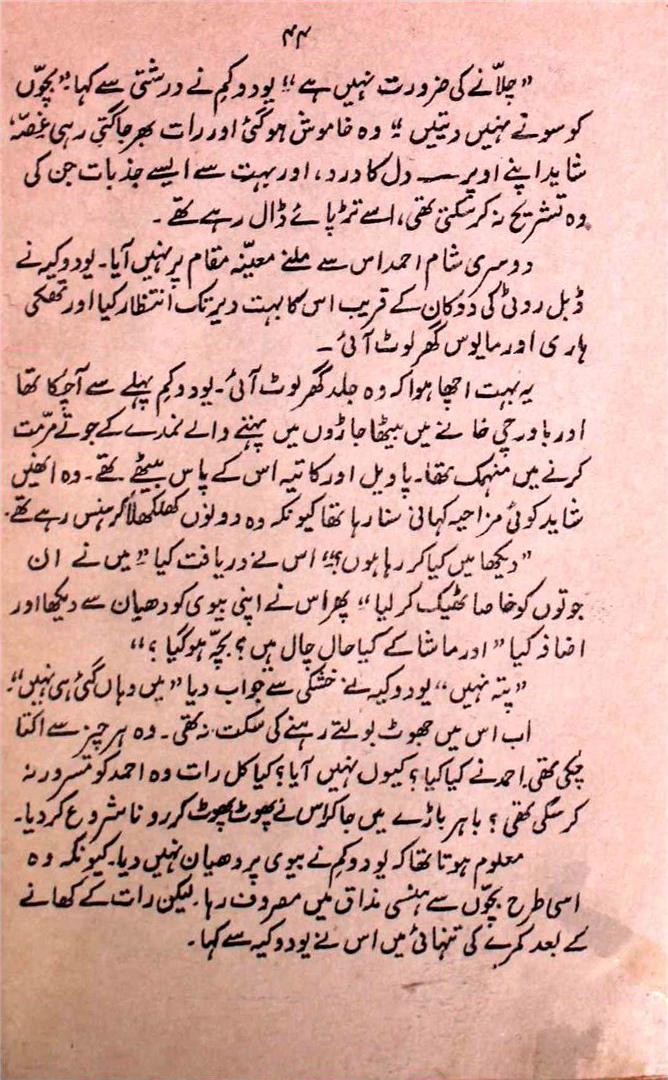 ۴۴
”چلّانے کی ضرورت نہیں ہے“! یودوکِم نے درشتی سے کہا۔ ”بچّوں
کو سونے نہیں دیتیں“! وہ خاموش ہوگئی اور رات بھر جاگتی رہی غصّہ،
شاید اپنے اوپر — دل کا درد، اور بہت سے ایسے جذبات جن کی
وہ تشریح نہ کر سکتی تھی، اسے تڑپائے ڈال رہے تھے۔
دوسری شام احمد اس سے ملنے معیّنہ مقام پر نہیں آیا۔ یودوکیہ نے
ڈبل روٹی کی دوکان کے قریب اس کا بہت دیر تک انتظار کیا اور تھکی
ہاری اور مایوس گھر لوٹ آئی۔
یہ بہت اچھا ہوا کہ وہ جلد گھر لوٹ آئی۔ یودوکِم پہلے سے آچکا تھا
اور باورچی خانے میں بیٹھا جاڑوں میں پہننے والے نمدے کے جوتے مرمّت
کرنے میں منہمک تھا۔ پاویل اور کاتیہ اس کے پاس بیٹھے تھے۔ وہ انھیں
شاید کوئی مزاحیہ کہانی سنا رہا تھا کیونکہ وہ دونوں کھلکھلا کر ہنس رہے تھے۔
”دیکھا میں کیا کر رہا ہوں؟“ اس نے دریافت کیا ”میں نے ان
جوتوں کو خاصا ٹھیک کر لیا“ پھر اس نے اپنی بیوی کو دھیان سے دیکھا اور
اضافہ کیا ”اور ماشا کے کیا حال چال ہیں؟ بچّہ ہوگیا؟“
”پتہ نہیں“ یودوکیہ نے خشکی سے جواب دیا ”میں وہاں گئی ہی نہیں“۔
اب اس میں جھوٹ بولتے رہنے کی سکت نہ تھی۔ وہ ہر چیز سے اکتا
چکی تھی۔ احمد نے کیا کیا؟ کیوں نہیں آیا؟ کیا کل رات وہ احمد کو مسرور نہ
کر سکی تھی؟ باہر باڑے میں جا کر اس نے پھوٹ پھوٹ کر رونا شروع کر دیا۔
معلوم ہوتا تھا کہ یودوکِم نے بیوی پر دھیان نہیں دیا۔ کیونکہ وہ
اسی طرح بچّوں سے ہنسی مذاق میں مصروف رہا۔ لیکن رات کے کھانے
کے بعد کمرے کی تنہائی میں اس نے یودوکیہ سے کہا۔